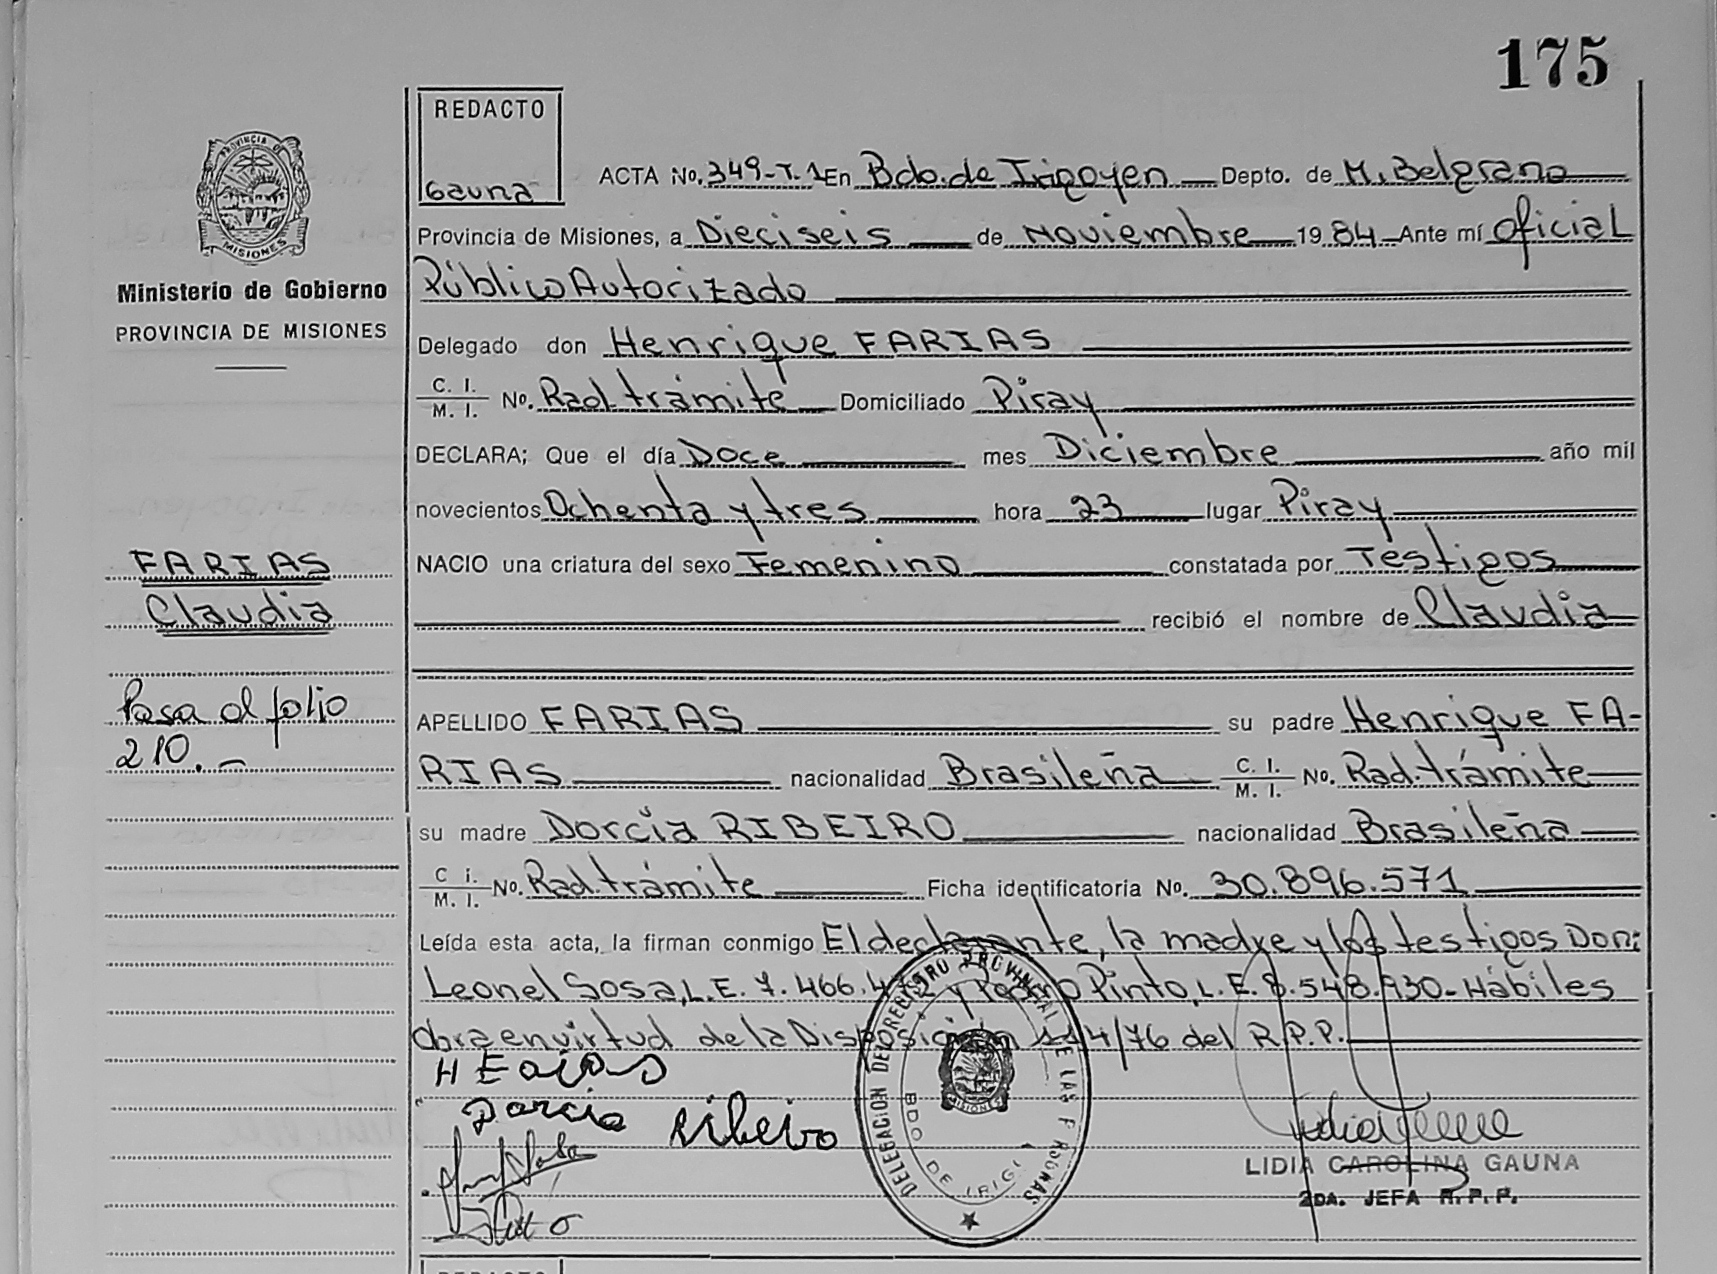 175
REDACTO
Gauna
ACTA No. 349-T.1 En Bdo. de Irigoyen Depto. de M. Belgrano
Provincia de Misiones, a Dieciseis de Noviembre 1984 Ante mí Oficial
Público Autorizado
Delegado don Henrique FARIAS
C. I. / M. I. No. Rad. trámite Domiciliado Piray
DECLARA; Que el día Doce mes Diciembre año mil
novecientos Ochenta y tres hora 23 lugar Piray
NACIO una criatura del sexo Femenino constatada por Testigos
recibió el nombre de Claudia
APELLIDO FARIAS su padre Henrique FA-
RIAS nacionalidad Brasileña C. I. / M. I. No. Rad. trámite
su madre Dorcia RIBEIRO nacionalidad Brasileña
C i. / M. I. No. Rad. trámite Ficha identificatoria No. 30.896.571
Leída esta acta, la firman conmigo El declarante, la madre y los testigos Don:
Leonel Sosa, L.E. 7.466.4 y Pedro Pinto, L.E. 8.548.930- Hábiles
Obra en virtud de la Disposición 4/76 del R.P.P.
Dorcia Ribeiro
LIDIA CAROLINA GAUNA
2DA. JEFA R. P. P.
DELEGACION DEL REGISTRO PROVINCIAL DE LAS PERSONAS
BDO DE IRIG.
MISIONES
PROVINCIA DE
MISIONES
Ministerio de Gobierno
PROVINCIA DE MISIONES
FARIAS
Claudia
Pasa al folio
210.-
REDACTO